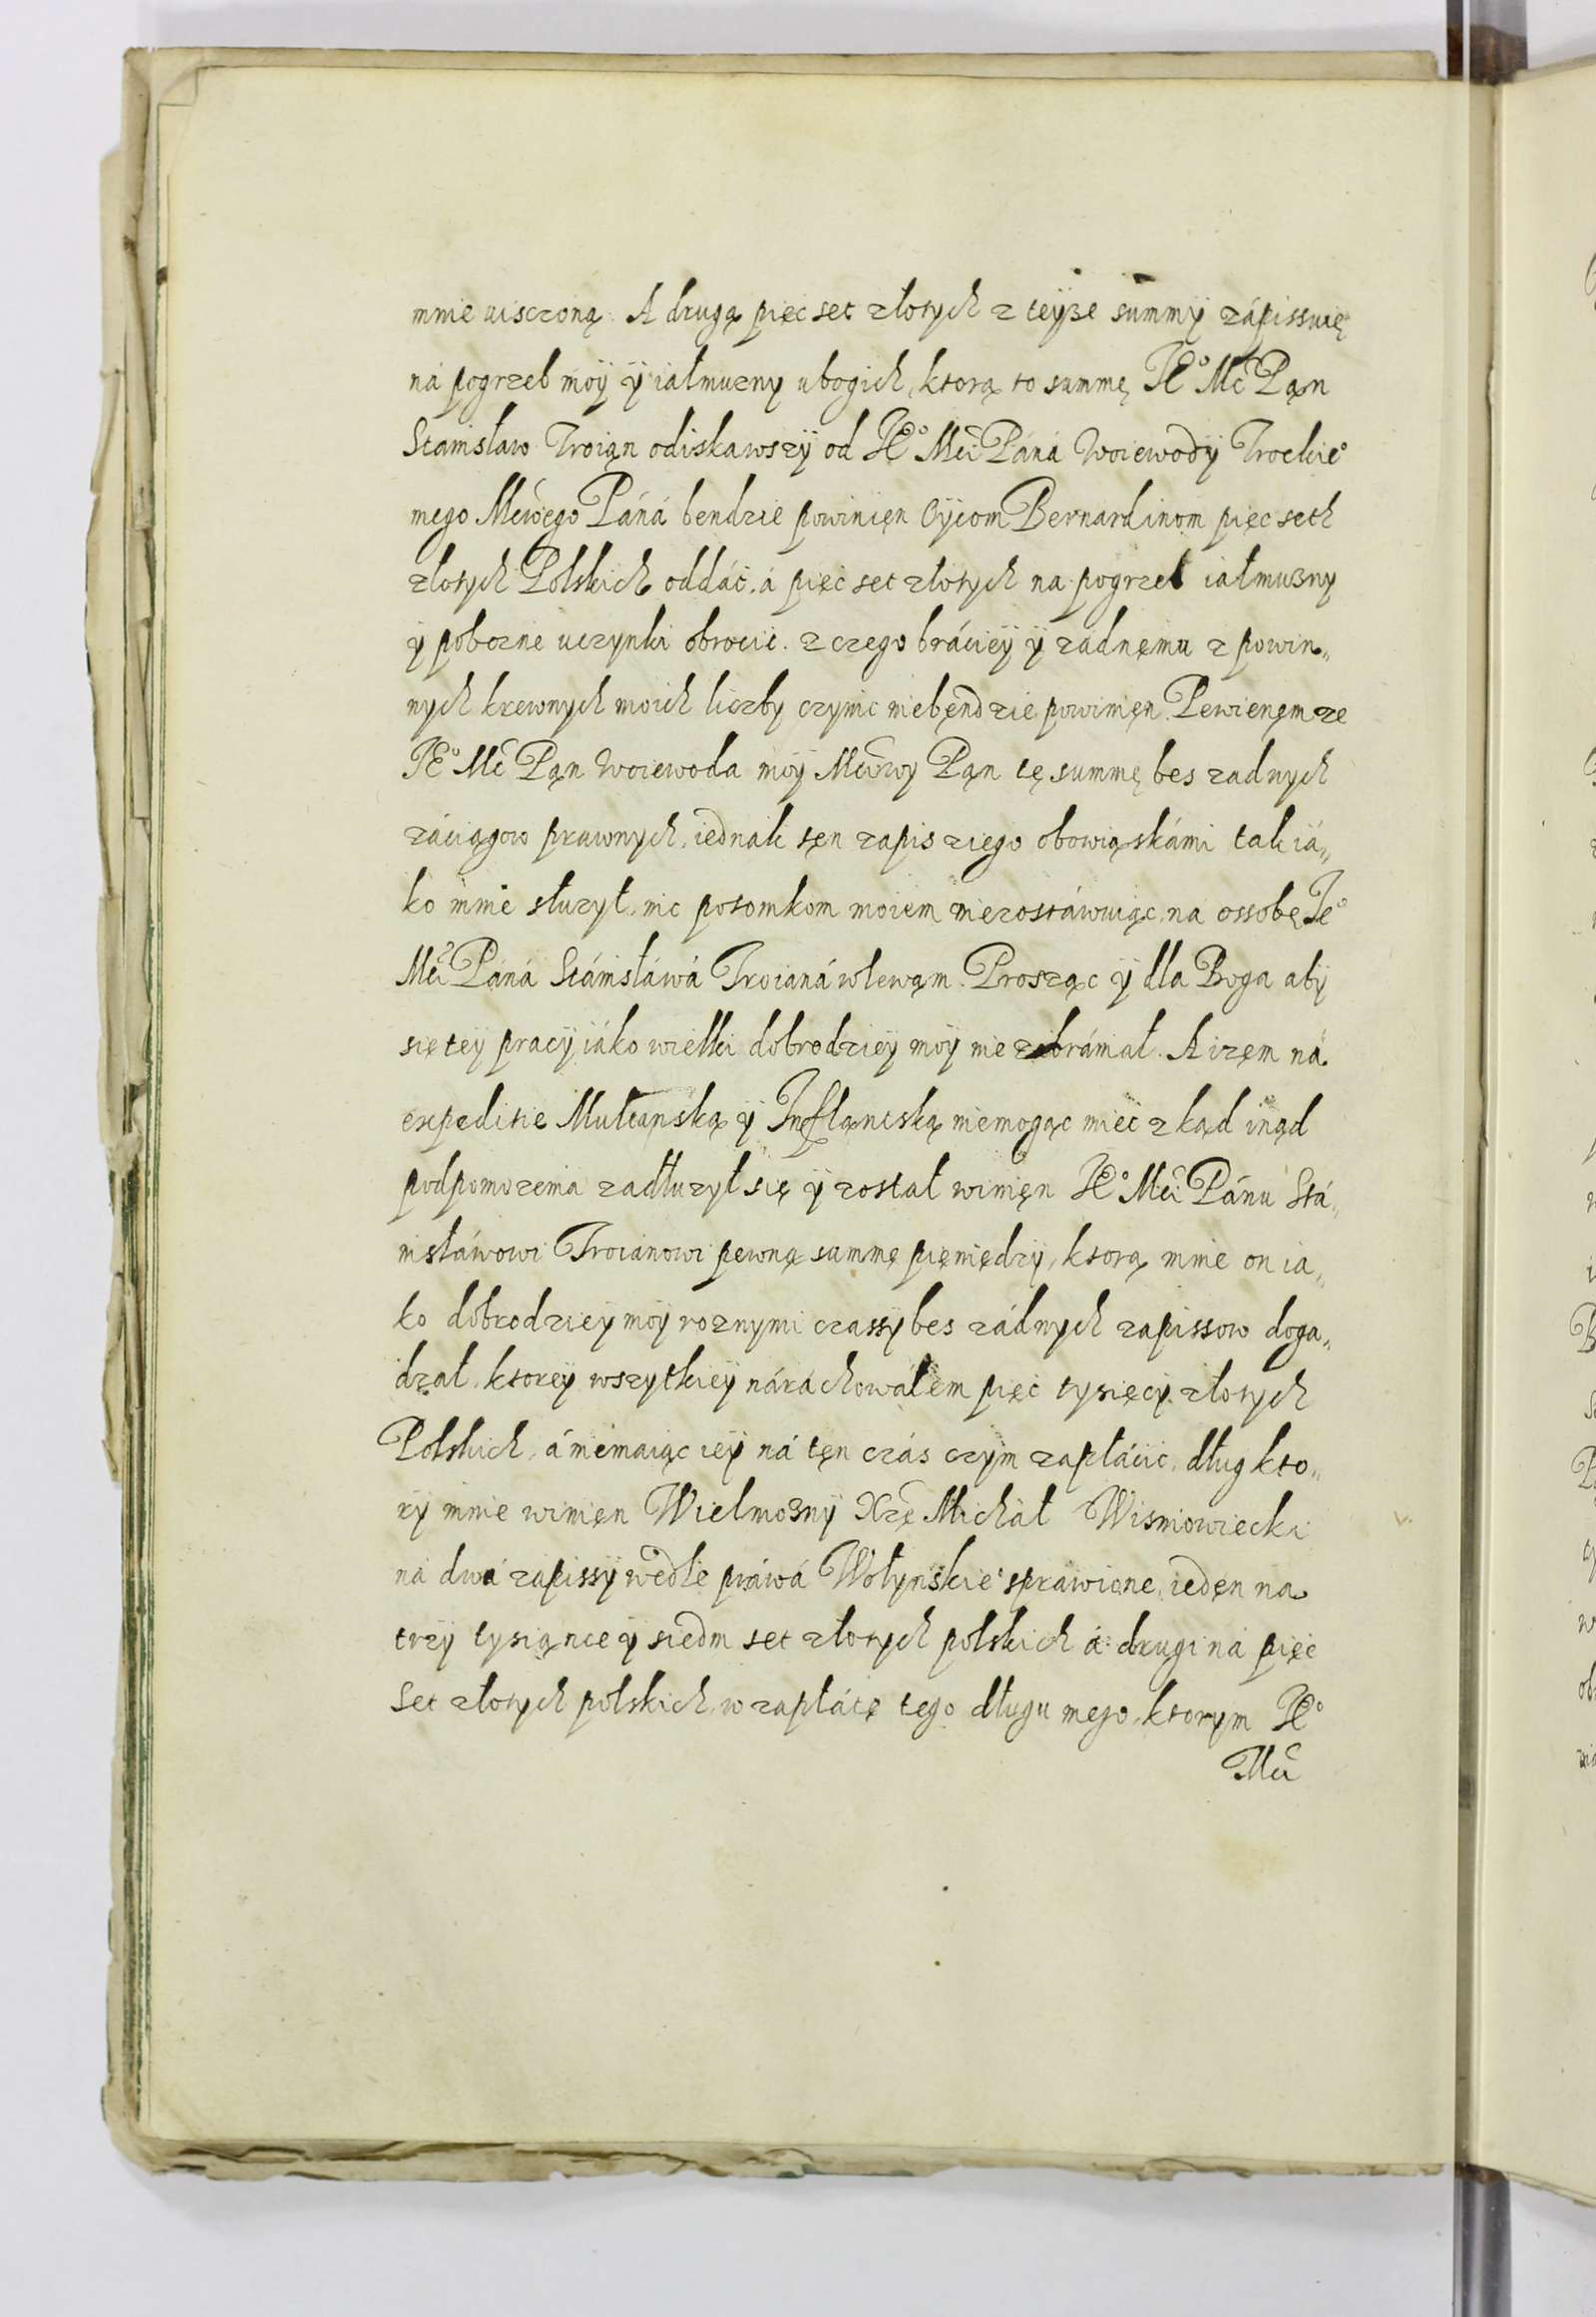 mnie uisczoną. A drugą pięc set złotych z teyże summy zápissuię
ná pogrzeb moy y iałmuzny ubogich, ktorą to summę Je° Mć Pąn
Stanisław Troiąn odiskawszy od Je° Mći Páná Woiewody Trockie°
mego Mćiwego Páná bendzie powinięn Oycom Bernardinom pięc seth
złotych Polskich oddáć, á pięc set złotych na pogrzeb iałmużny
y pobozne uczynki obrocic. z czego bráciey y zadnęmu z powin„
nych krewnych moich liczby czynic niebęndzie powinięn. Pewienęm ze
Je° Mć Pąn Woiewoda moy Mćiwy Pąn tę summę bes zadnych
záciągow prawnych, iednak tęn zapis z iego obowiąskámi tak iá„
ko mnie słuzył, nic potomkom moiem niezostáwuiąc, na ossobę Je°
Mći Páná Stánisłáwá Troianá wlewąm. Prosząc y dla Boga aby
się tey pracy iáko wielki dobrodziey moy nie zbrániał. A izęm ná
expeditie Multanską y Inflantską niemogąc miec z kąd inąd
podpomozenia zadłuzył się y został winięn Je° Mći Pánu Stá„
nisłáwowi Troianowi pewną summę pięniędzy, ktorą mnie on ia„
ko dobrodziey moy roznymi czassy bes zádnych zapissow doga„
dzał, ktorey wszytkiey nárachowałem pięc tysięcy złotych
Polskich, á niemaiąc iey ná tęn czás czym zapłácic, dług kto„
ry mnie winięn Wielmożny Xżę Michał Wisniowiecki
ná dwá zapissy wedle práwá Wołynskie° sprawione, iedęn na
trzy tysiąnce y siedm set złotych polskich á drugi ná pięc
set złotych polskich, w zapłátę tego długu mego, ktorym Je°
Mći